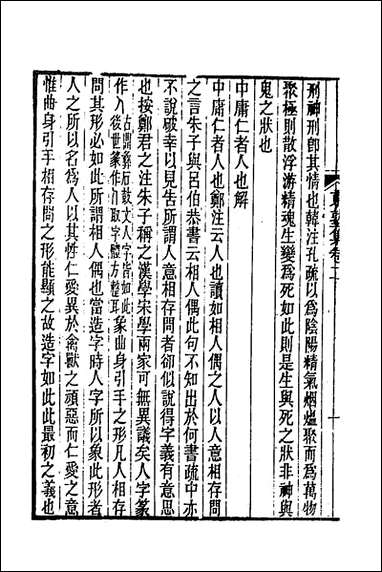 東塾集卷二
十
刑神刑卽其情也韓注孔疏以爲陰陽精氣烟熅聚而爲萬物
聚極則散浮游精魂生變爲死如此則是生與死之狀非神與
鬼之狀也
中庸仁者人也解
中庸仁者人也鄭注云人也讀如相人偶之人以人意相存問
之言朱子與呂伯恭書云相人偶此句不知出於何書疏中亦
不說破幸以見告所謂人意相存問者卻似說得字義有意思
也按鄭君之注朱子稱之漢學宋學兩家可無異議矣人字篆
作人古鼎彝石鼓文人字皆如此後世篆作人取字體方整耳象曲身引手之形凡人相存
問其形必如此所謂相人偶也當造字時人字所以象此形者
人之所以名爲人以其性仁愛異於禽獸之頑惡而仁愛之意
惟曲身引手相存問之形能顯之故造字如此此最初之義也